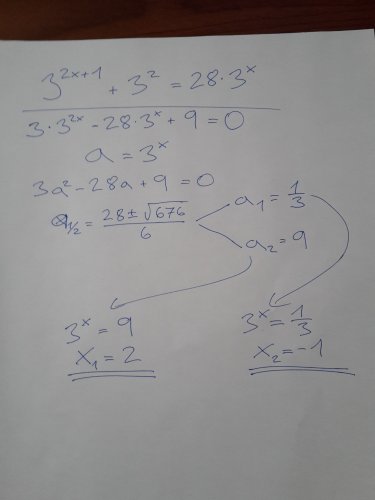 3^{2x+1} + 3^2 = 28·3^x
3·3^{2x} - 28·3^x + 9 = 0
a = 3^x
3a^2 - 28a + 9 = 0
a_{1/2} = \frac{28 ± \sqrt{676}}{6}
a_1 = \frac{1}{3}
a_2 = 9
3^x = 9
x_1 = 2
3^x = \frac{1}{3}
x_2 = -1